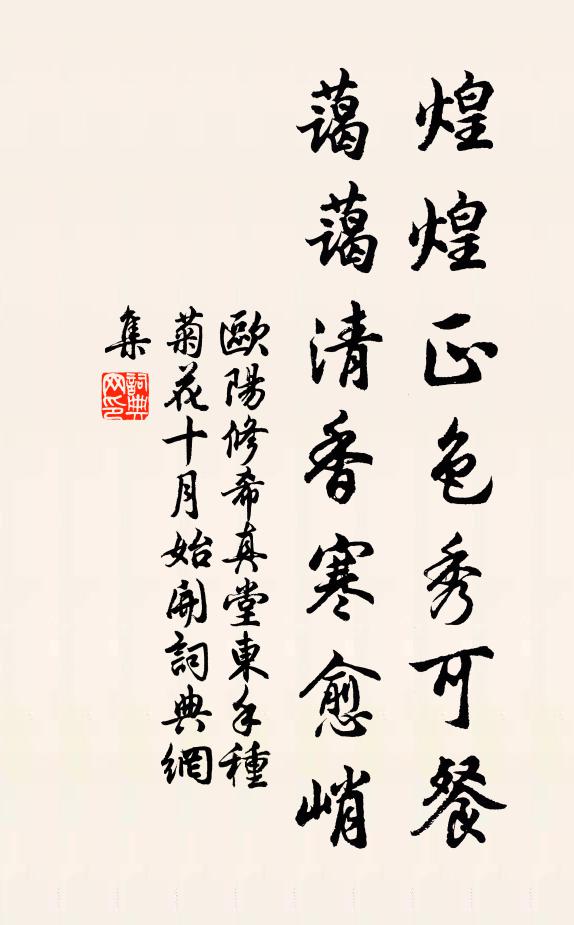 煌煌正色秀可餐
藹藹清香寒愈峭
歐陽修希真堂東手種
菊花十月始開詞典網
集
詞典
网印